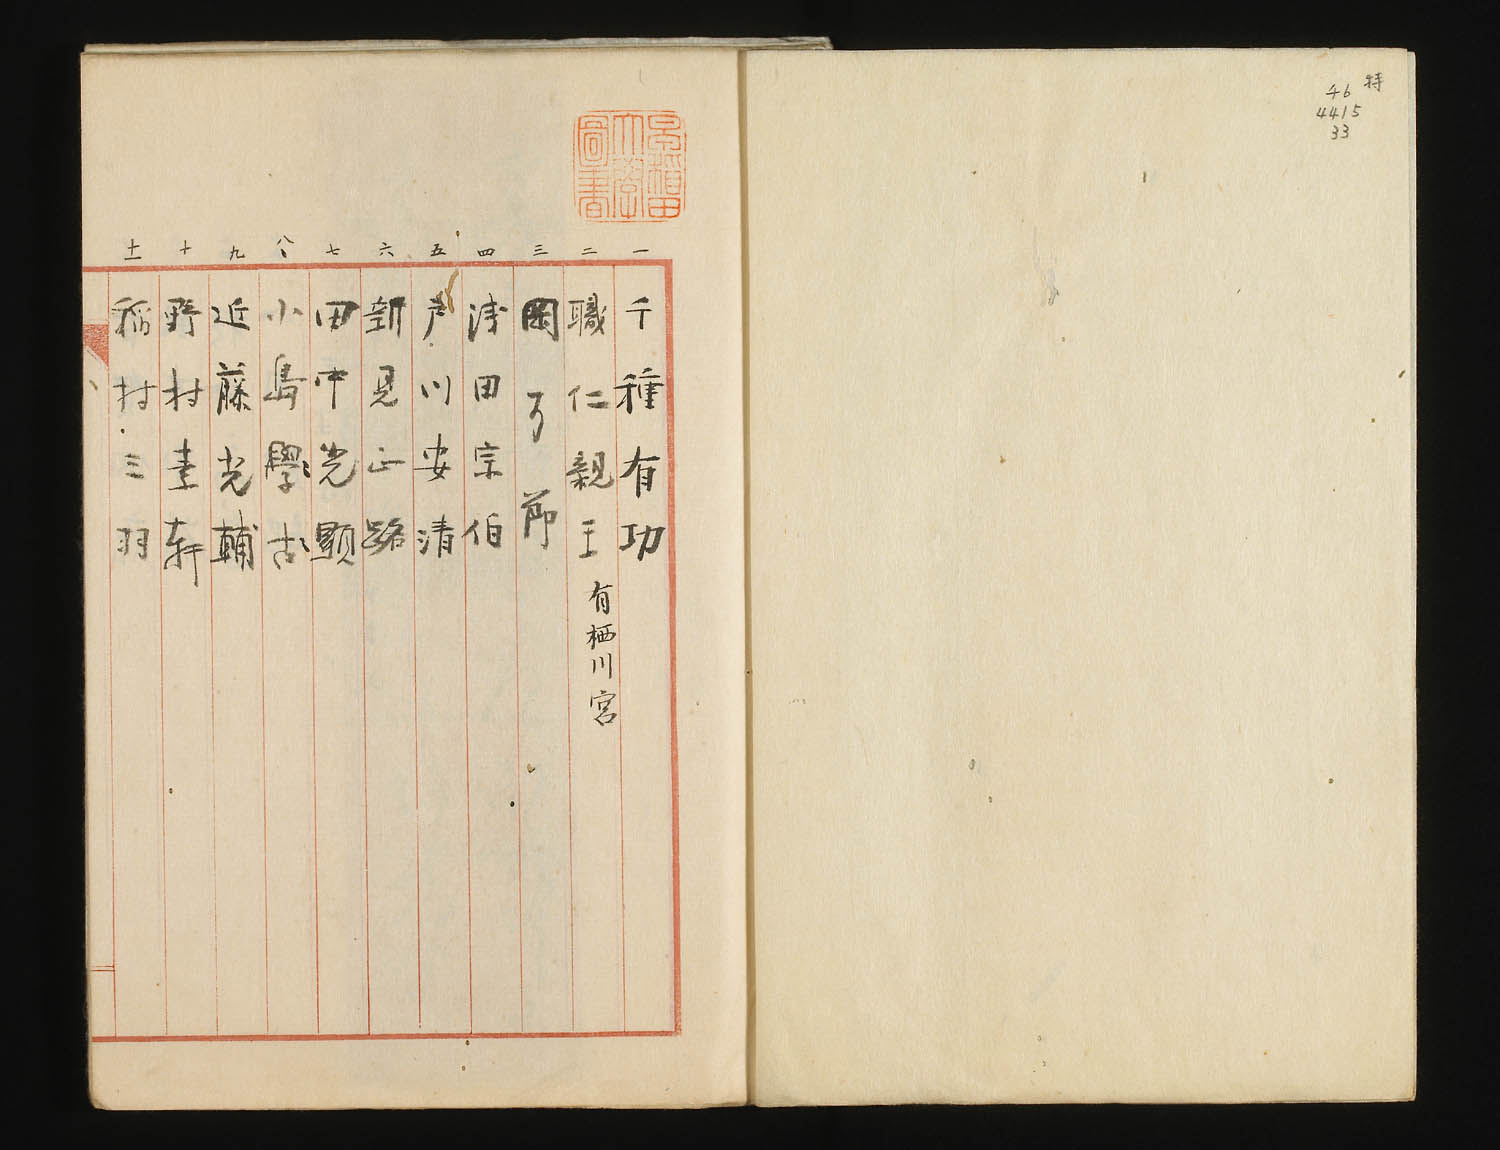 特
46
4415
33
早稲田大学図書
一 千種有功
二 職仁親王 有栖川宮
三 岡了節
四 浅田宗伯
五 芦川安清
六 新見正路
七 田中光顕
八 小島學古
九 近藤光輔
十 野村素軒
十一 稲村三羽